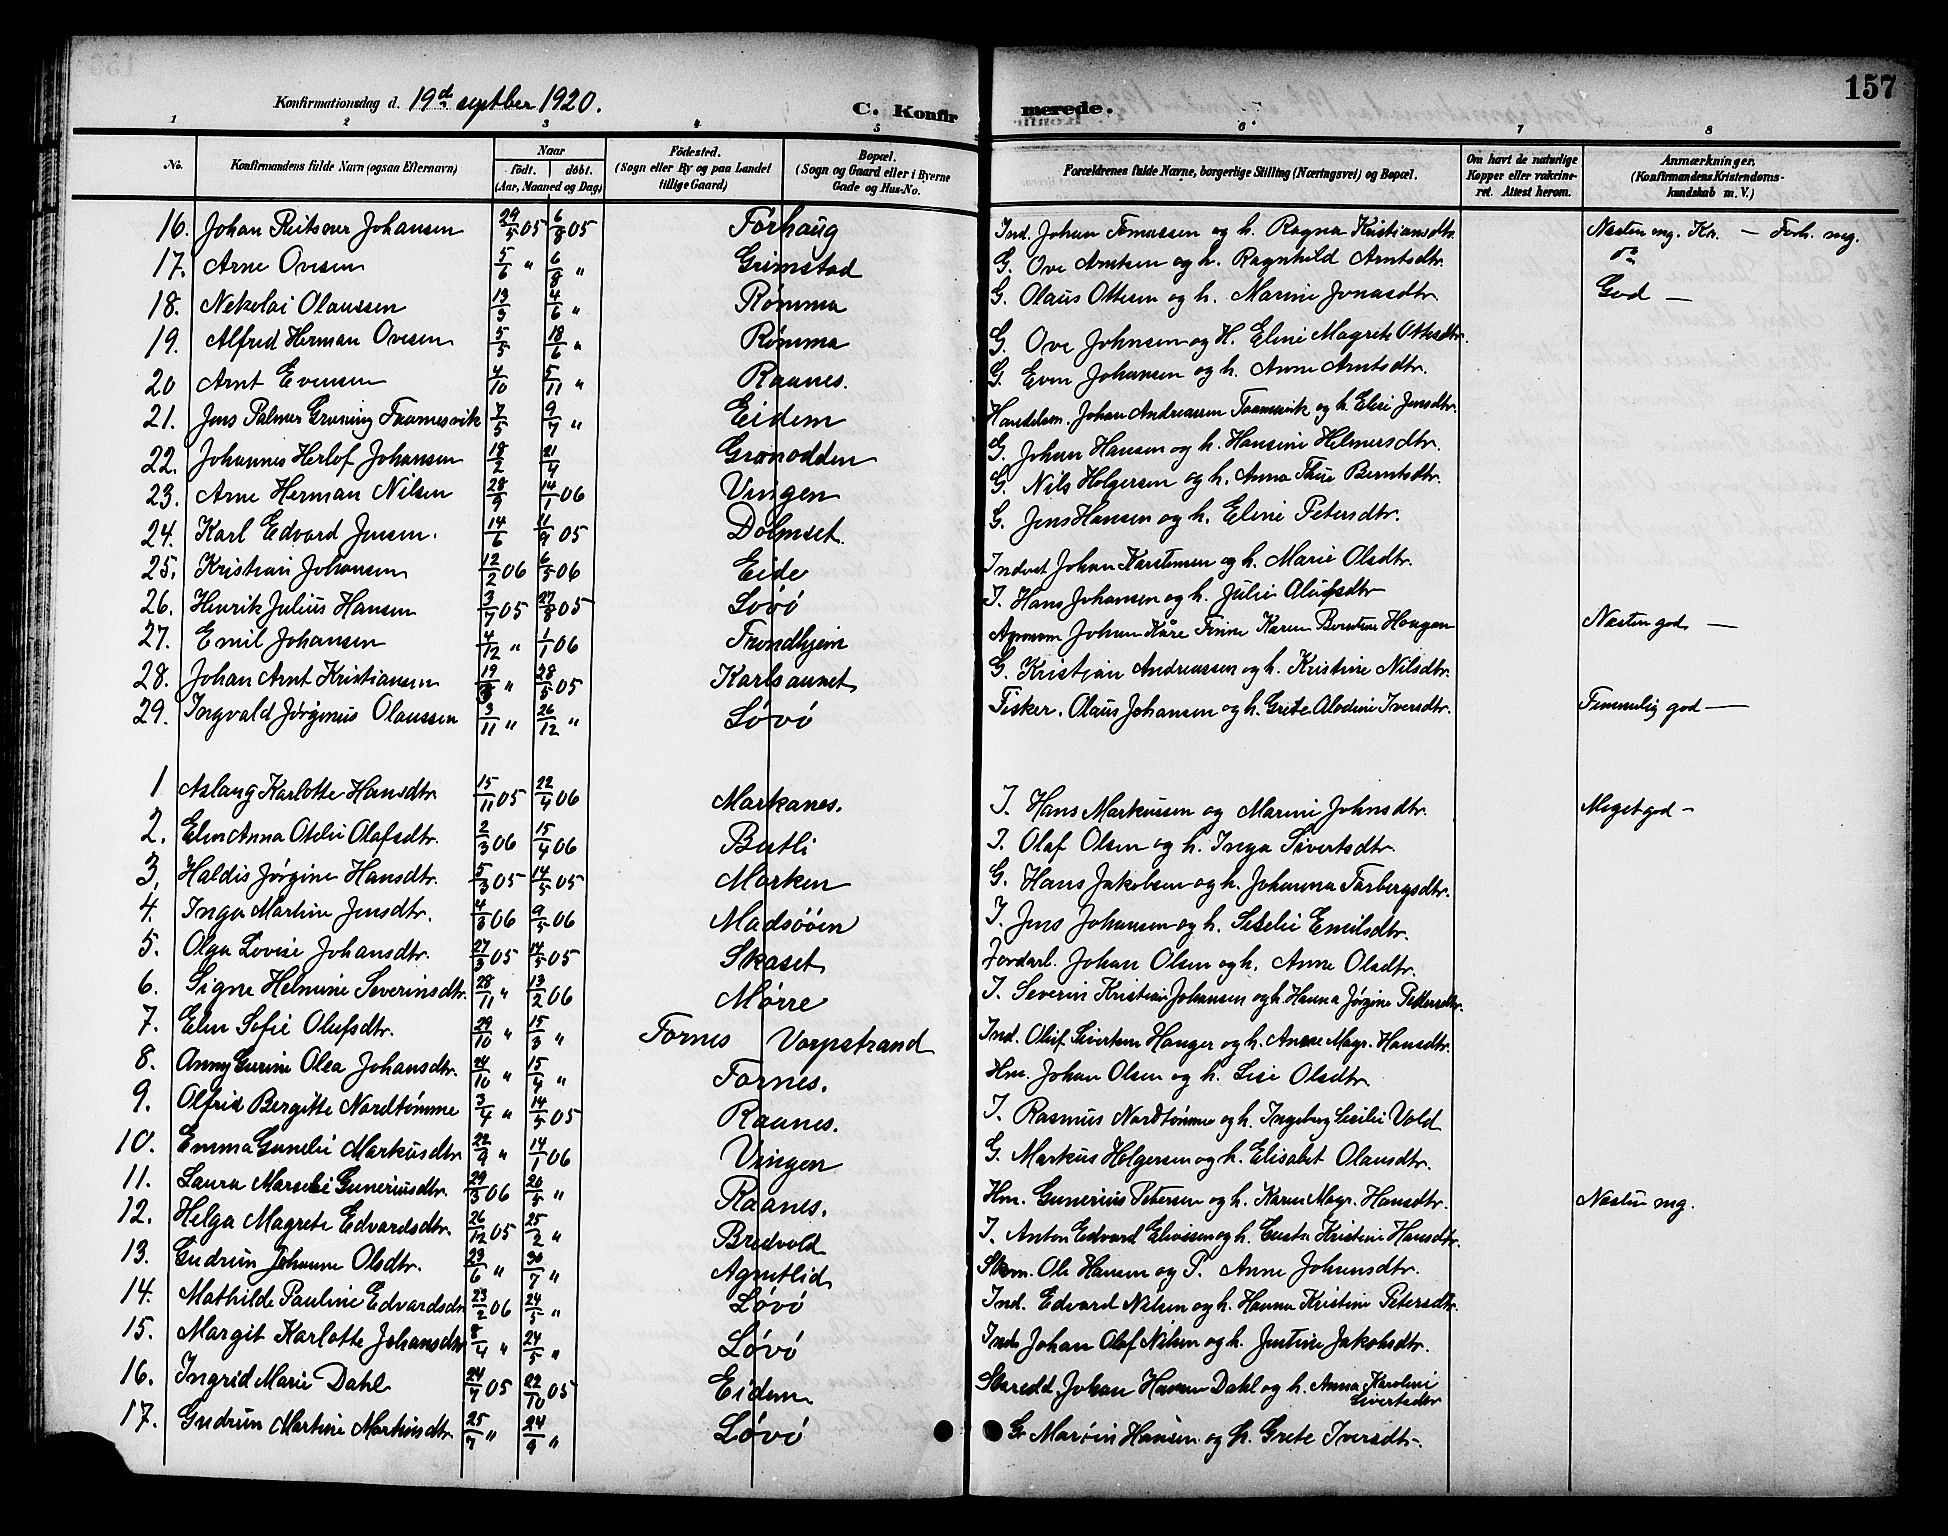 157
Konfirmationsdag d. 19de septber 1920.
C. Konfir merede.
1 2 3 4 5 6 7 8
No. Konfirmandens fulde Navn (ogsaa Efternavn) Naar født. døbt. (Aar, Maaned og Dag) Fødested. (Sogn eller By og paa Landet tillige Gaard) Bopæl. (Sogn og Gaard eller i Byerne Gade og Hus-No. Forældrenes fulde Navne, borgerlige Stilling (Næringsvei) og Bopæl. Om havt de naturlige Kopper eller vakcineret. Attest herom. Anmærkninger. (Konfirmandens Kristendomskundskab m. V.)
16. Johan Reitsner Johansen 29/5 05 6/8 05 Forhaug Ind. Johan Tomassen og h. Ragna Kristiansdtr. Næsten mg. Kr. — Forh. mg.
17. Arne Ovesen 5/6 " 6/8 " Grimstad G. Ove Arntsen og h. Ragnhild Arntsdtr. do
18. Nekolai Olaussen 13/3 4/6 " Rømma G. Olaus Ottesen og h. Marine Jonasdtr. God —
19. Alfred Herman Ovesen 5/5 18/6 " Rømma G. Ove Johnsen og H. Eline Magrete Ottesdtr.
20 Arnt Evensen 4/10 5/11 " Raanes. G. Even Johansen og h. Anne Arntsdtr.
21. Jens Palmer Grøning Taarnesvik 7/5 9/7 " Eidem Handelsm. Johan Andreassen Taarnesvik og h. Elesi Jensdtr.
22. Johannes Herlof Johansen 18/2 21/4 Grønodden G. Johan Hansen og h. Hansine Helmersdtr.
23. Arne Herman Nilsen 28/9 14/1 06 Vingen G. Nils Holgersen og h. Anna Thue Berntsdtr.
24. Karl Edvard Jensen. 14/6 11/9 05 Dolmset. G. Jens Hansen og h. Eline Petersdtr.
25. Kristian Johansen 12/2 06 6/5 06 Eide Inderst Johan Karstensen og h. Marie Olsdtr.
26. Henrik Julius Hansen 3/7 05 27/8 05 Løvø I. Hans Johansen og h. Julie Alufsdtr
27. Emil Johansen 4/12 " 1/1 06 Trondhjem Agronom Johan Kåre Finne Karen Berntine Haugan Næsten god —
28. Johan Arnt Kristiansen 19/3 " 28/5 05 Karlsaunet G. Kristjan Andreassen og h. Kristine Nilsdtr.
29. Ingvald Jørgenus Olaussen 3/11 " 26/12 " Løvø Fisker. Olaus Johansen og h. Grete Alodine Iversdtr. Temmelig god —
1 Aslaug Karlotte Hansdtr. 15/11 05 22/4 06 Markanes. I. Hans Markussen og Marine Johnsdtr. Meget god —
2. Elen Anna Otelie Olafsdtr. 2/3 06 15/4 06 Butli I. Olaf Olsen og h. Inga Sivertsdtr.
3. Haldis Jørgine Hansdtr. 5/3 05 14/5 05 Marken G. Hans Jakobsen og h. Johanna Torbergsdtr.
4. Inga Martine Jensdtr. 4/3 06 9/5 06 Madsøøen I. Jens Johansen og h. Seselie Emilsdtr.
5. Olga Lovise Johansdtr. 27/3 05 14/5 05 Skaset Jordarb. Johan Olsen og h. Anne Olsdtr.
6. Signe Helmine Severinsdtr. 28/11 " 13/2 06 Mørre I. Severin Kristian Johansen og h. Hanna Jørgine Pettersdtr.
7. Elen Sofie Olufsdtr. 29/10 " 15/3 " Fornes Vorpstrand Ind. Oluf Sivertsen Hauger og h. Anne Magr. Hansdtr.
8. Anny Gurine Olea Johansdtr. 24/10 " 15/4 " Fornes. Hm. Johan Olsen og h. Lise Olsdtr.
9. Olfrid Bergitte Nordtømme 3/4 " 14/5 05 Raanes. I. Rasmus Nordtømme og h. Ingeborg Sesilie Vold
10. Emma Gunelie Markusdtr 22/9 " 14/1 06 Vingen G. Markus Holgersen og h. Elisabet Olausdtr.
11. Laura Marselie Guneriusdtr. 29/3 06 20/5 " Raanes. Hm. Gunerius Petersen og h. Karen Magr. Hansdtr. Næsten mg.
12. Helga Magrete Edvardsdtr. 26/12 05 25/2 " Bredvold I. Anton Edvard Eliassen og h. Gusta Kristine Hansdtr.
13. Gudrun Johanne Olsdtr. 23/6 " 30/7 " Agnetlid Skom. Ole Hansen og P. Anne Johansdtr.
14. Mathilde Pauline Edvardsdtr 23/2 06 24/5 " Løvø Ind. Edvard Nilsen og h. Hanna Kristine Petersdtr.
15. Margit Karlotte Johansdtr 8/4 " 24/5 " Løvø Ind. Johan Olaf Nilsen og h. Justine Jakobsdtr.
16. Ingrid Marie Dahl 24/7 05 22/10 05 Eidem Skredd. Johan Hansen Dahl og h. Anna Karoline Sivertsdtr
17. Gudrun Martine Martinsdtr. 25/7 " 24/9 " Løvø G. Martin Hansen og h. Grete Iversdtr.